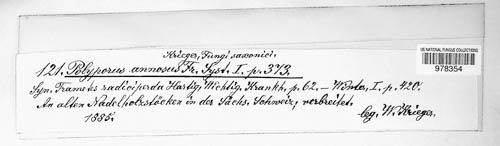 Krieger, Fungi saxonici.
121. Polyporus annosus Fr. Syst. I. p. 373.
Syn. Trametes radiciperda Hartig, Wichtig. Krankh. p. 62. — Winter, I. p. 420.
An alten Nadelholzstöcken in der Sächs. Schweiz, verbreitet.
1885. leg. W. Krieger.
US NATIONAL FUNGUS COLLECTIONS
978354